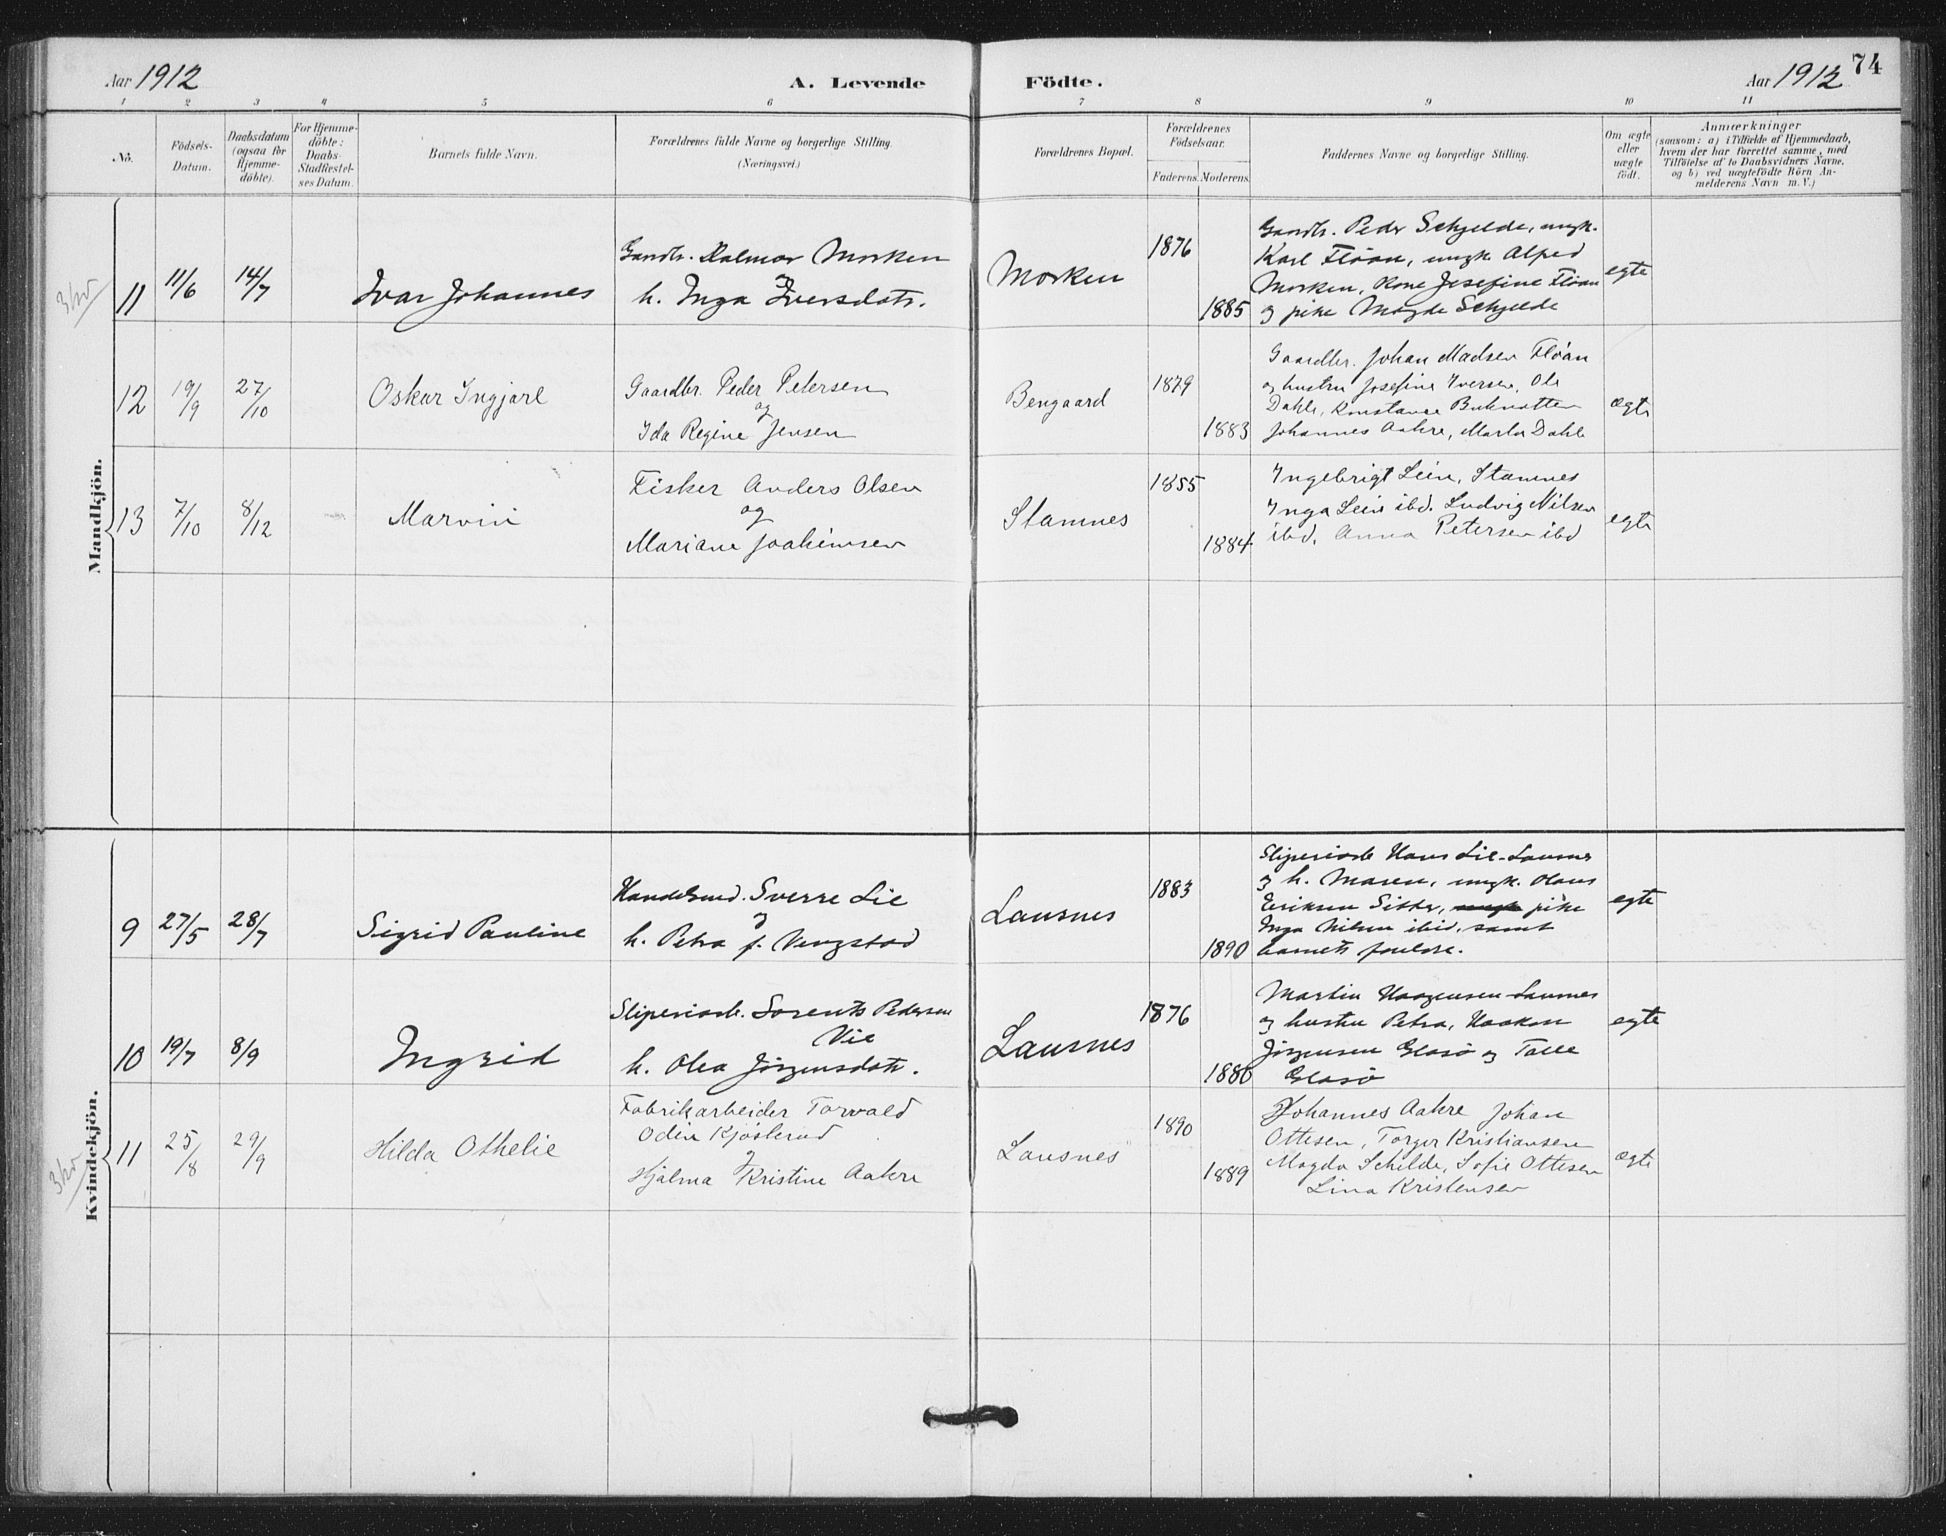 Aar 1912
A. Levende
Födte.
Aar 1912
74
1 2 3 4 5 6 7 8 9 10 11
No.
Födsels-
Datum.
Daabsdatum
(ogsaa for
Hjemme-
döbte).
For Hjemme-
döbte:
Daabs-
Stadfæstel-
ses Datum.
Barnets fulde Navn.
Forældrenes fulde Navne og borgerlige Stilling.
(Næringsvei.)
Forældrenes Bopæl.
Forældrenes
Födselsaar.
Faderens. Moderens.
Faddernes Navne og borgerlige Stilling.
Om ægte
eller
uægte
födt.
Anmærkninger
(saasom: a) i Tilfælde af Hjemmedaab,
hvem der har forrettet samme, med
Tilföielse af to Daabsvidners Navne,
og b) ved uægtefödte Börn An-
melderens Navn m. V.)
Mandkjön.
11
11/6
14/7
Ivar Johannes
Gaardbr. Halmar Morken
og
h. Inga Iversdatr.
Morken
1876
1885
Gaardbr. Peder Schjelde, ungk.
Karl Flöan, ungk Alfred
Morken, Kone Josefine Flöan
og pike Magda Schjelde
egte
12
19/9
27/10
Oskar Ingjarl
Gaardbr. Peder Petersen
og
Ida Regine Jensen
Bengaard
1879
1883
Gaardbr. Johan Madsen Flöan
og hustru Josefine Iversen, Ole
Dahle, Konstance
Johannes Aakre, Marta Dahle
ægte
13
7/10
8/12
Marvin
Fisker Anders Olsen
og
Mariane Joakimsen
Stamnes
1855
1884
Ingebrigt Lein, Stamnes
Inga Lein ibd. Ludvig Nilsen
ibd. Anna Petersen ibd
egte
Kvindekjön.
9
27/5
28/7
Sigrid Pauline
Handelsmd. Sverre Lie
og
h. Petra f. Vengstad
Lausnes
1883
1890
Sliperiarb Hans Lie-Lausnes
og h. Maren, ungk. Hans
Eriksen Sitter, pike
Inga Nilsen ibid, samt
barnets foreldre.
egte
10
19/7
8/9
Ingrid
Sliperiarb. Sorents Pedersen
Vie
h. Olea Jörgensdatr.
Lausnes
1876
1880
Martin Haagensen Lausnes
og hustru Petra, Haakon
Jörgensen Glasö og
Glasö
egte
11
25/8
29/9
Hilda Othelie
Fabrikarbeider Torvald
Odin Kjösterud
og
Hjalma Kristine Aakre
Lausnes
1890
1889
Johannes Aakre Johan
Ottesen, Torger Kristiansen
Magda Schilde, Sofie Ottesen
Lina Kristensen
ægte